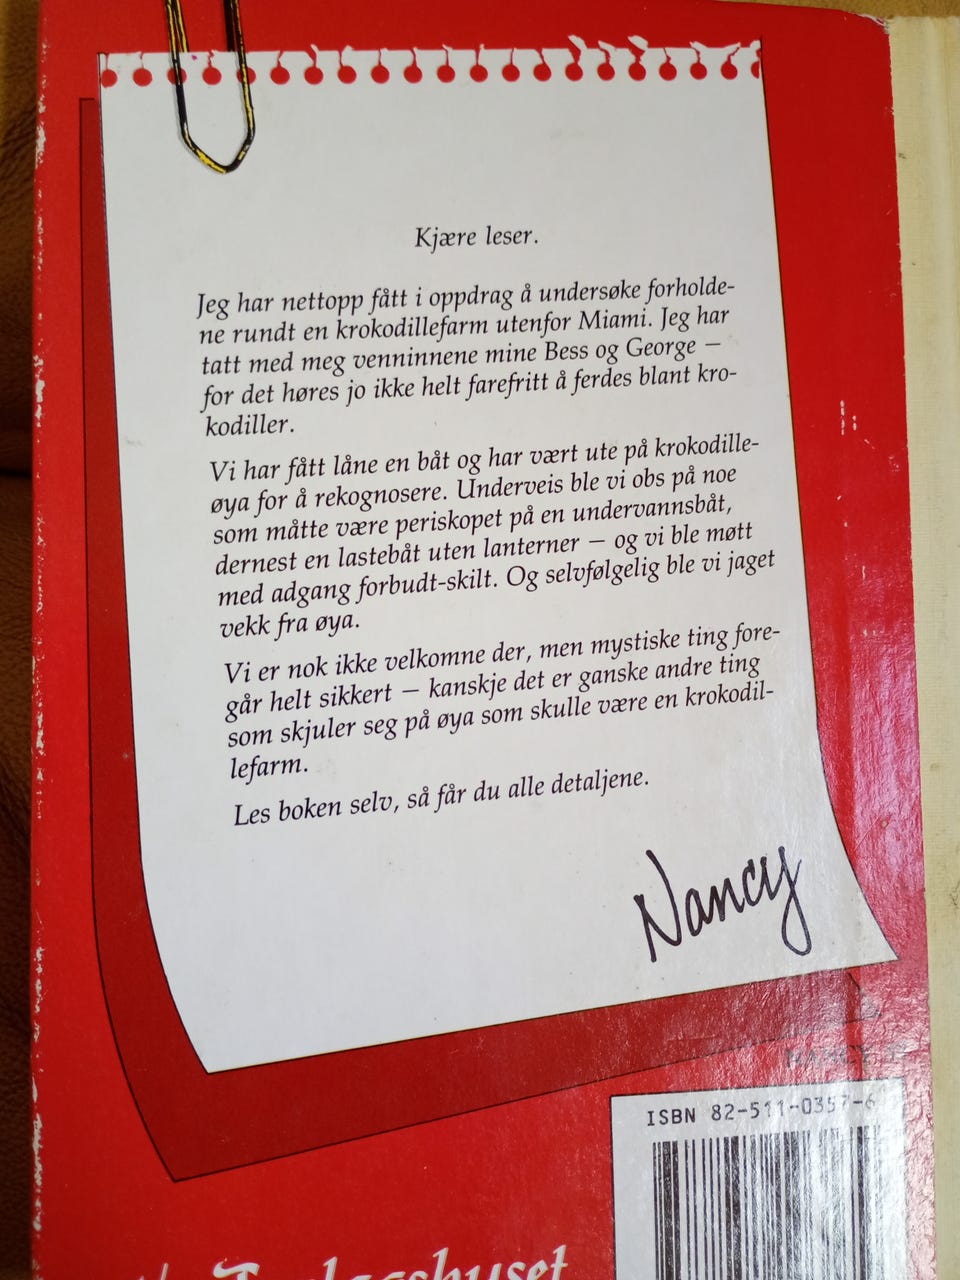 Kjære leser.
Jeg har nettopp fått i oppdrag å undersøke forholde-
ne rundt en krokodillefarm utenfor Miami. Jeg har
tatt med meg venninnene mine Bess og George —
for det høres jo ikke helt farefritt å ferdes blant kro-
kodiller.
Vi har fått låne en båt og har vært ute på krokodille-
øya for å rekognosere. Underveis ble vi obs på noe
som måtte være periskopet på en undervannsbåt,
dernest en lastebåt uten lanterner — og vi ble møtt
med adgang forbudt-skilt. Og selvfølgelig ble vi jaget
vekk fra øya.
Vi er nok ikke velkomne der, men mystiske ting fore-
går helt sikkert — kanskje det er ganske andre ting
som skjuler seg på øya som skulle være en krokodil-
lefarm.
Les boken selv, så får du alle detaljene.
Nancy
NANCY
ISBN 82-511-0357-6
Forlagshuset